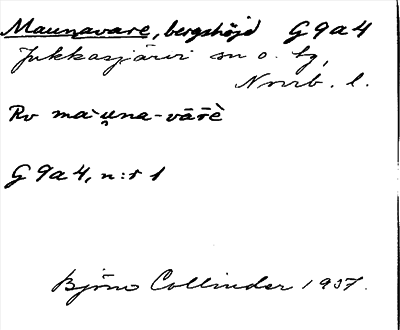 Maunavare, bergshöjd G9a4
Jukkasjärvi sn o. tg,
Norrb. l.
Rv ma·u̯na-vārè
G9a4, n:r 1
Björn Collinder 1937.